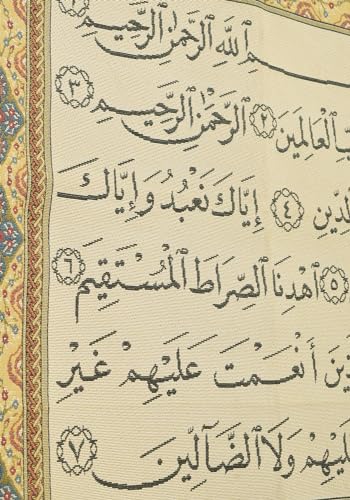 ـمِ ٱللَّهِ ٱلرَّحْمَٰنِ ٱلرَّحِيمِ ١
ـبِّ ٱلْعَالَمِينَ ٢ ٱلرَّحْمَٰنِ ٱلرَّحِيمِ ٣
ٱلدِّينِ ٤ إِيَّاكَ نَعْبُدُ وَإِيَّاكَ
٥ ٱهْدِنَا ٱلصِّرَاطَ ٱلْمُسْتَقِيمَ ٦
ـذِينَ أَنْعَمْتَ عَلَيْهِمْ غَيْرِ
ـلَيْهِمْ وَلَا ٱلضَّآلِّينَ ٧